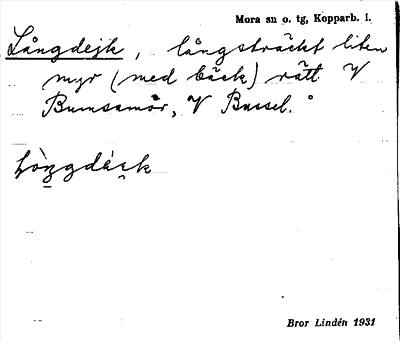 Mora sn o. tg, Kopparb. l.
Långdejk, långsträckt liten
myr (med bäck) rätt V
Bumsamår, V Bassel.
Bror Lindén 1931